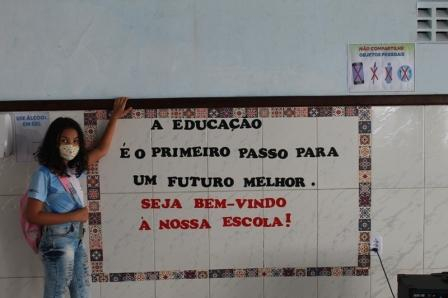 NÃO COMPARTILHAR
OBJETOS PESSOAIS
USE ÁLCOOL
EM GEL
A EDUCAÇÃO
É O PRIMEIRO PASSO PARA
UM FUTURO MELHOR.
SEJA BEM-VINDO
À NOSSA ESCOLA!